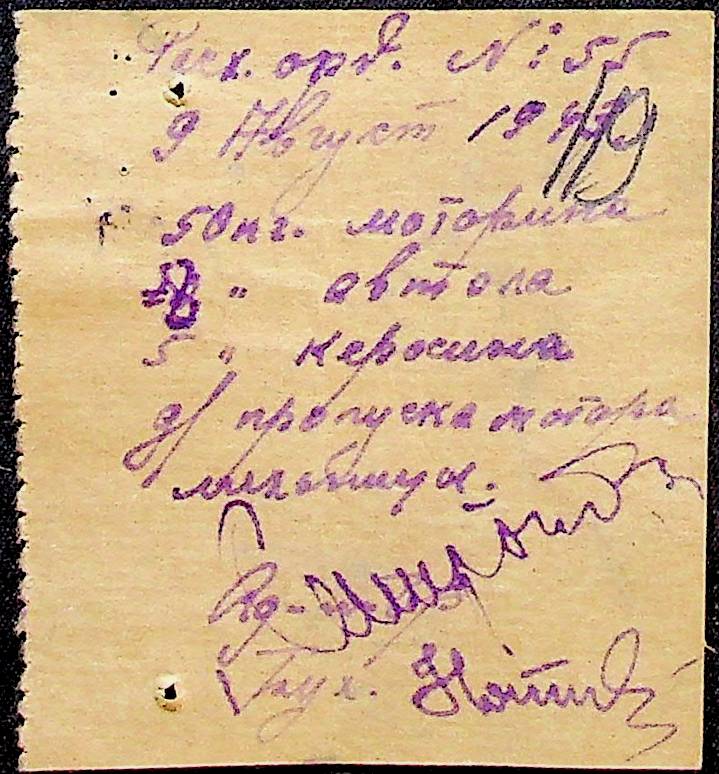 Расх. орд. №: 55
9 Август 194
119
50 кг. моторина
" автола
5 " керосина
д/ пропуска мотора
Бух.